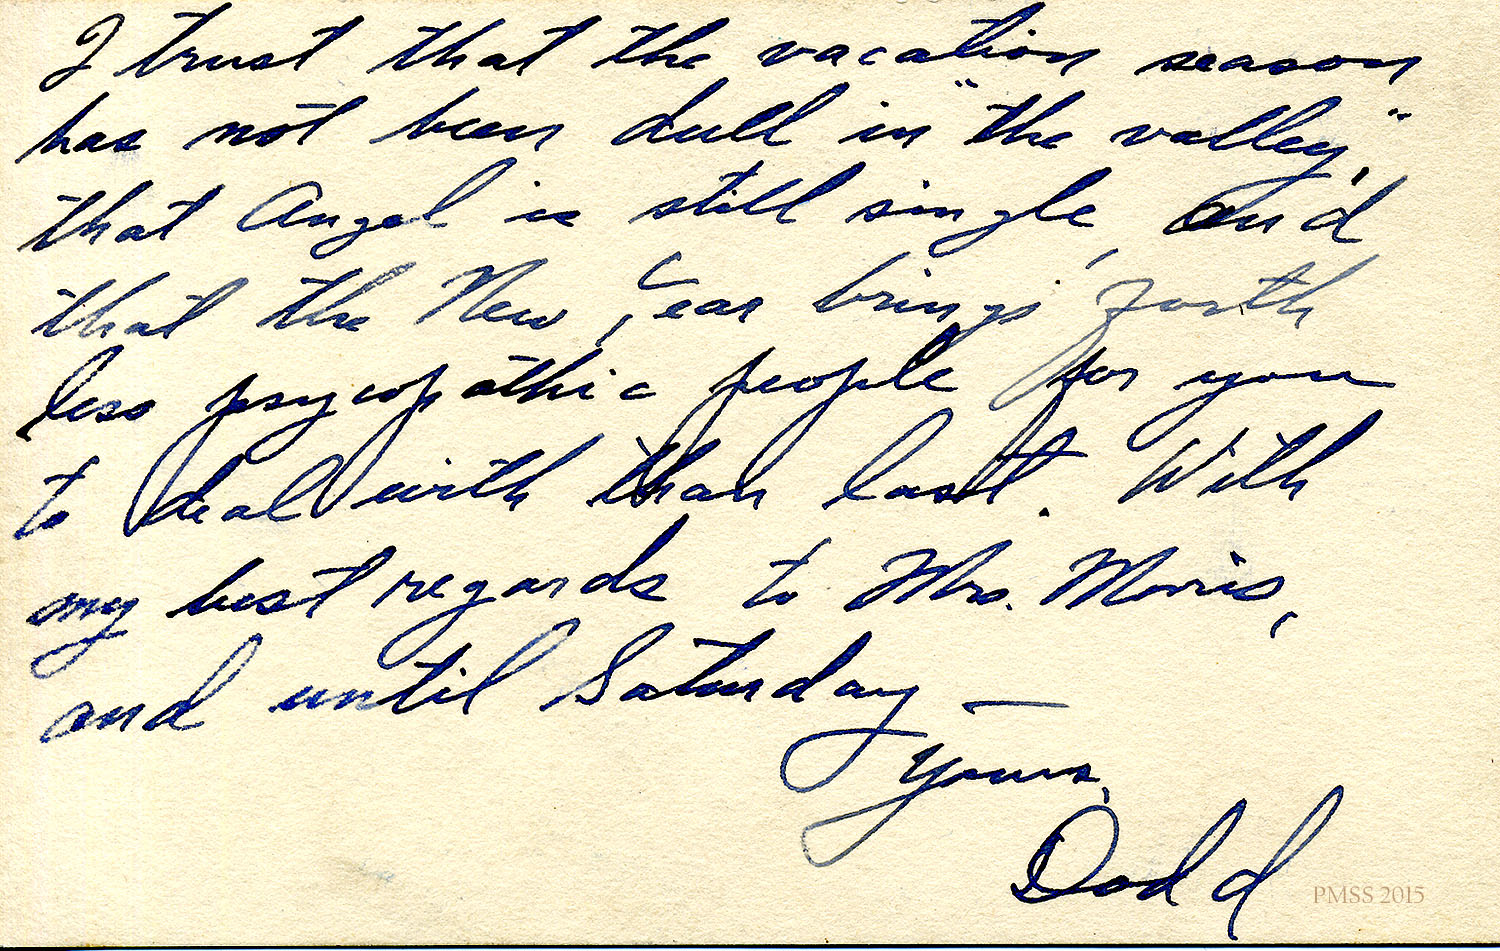 I trust that the vacation season
has not been dull in "the valley,"
that Angel is still single, and
that the New Year brings forth
less psycopathic people for you
to deal with than last. With
my best regards to Mrs. Morris,
and until Saturday —
Yours,
Dodd
PMSS 2015